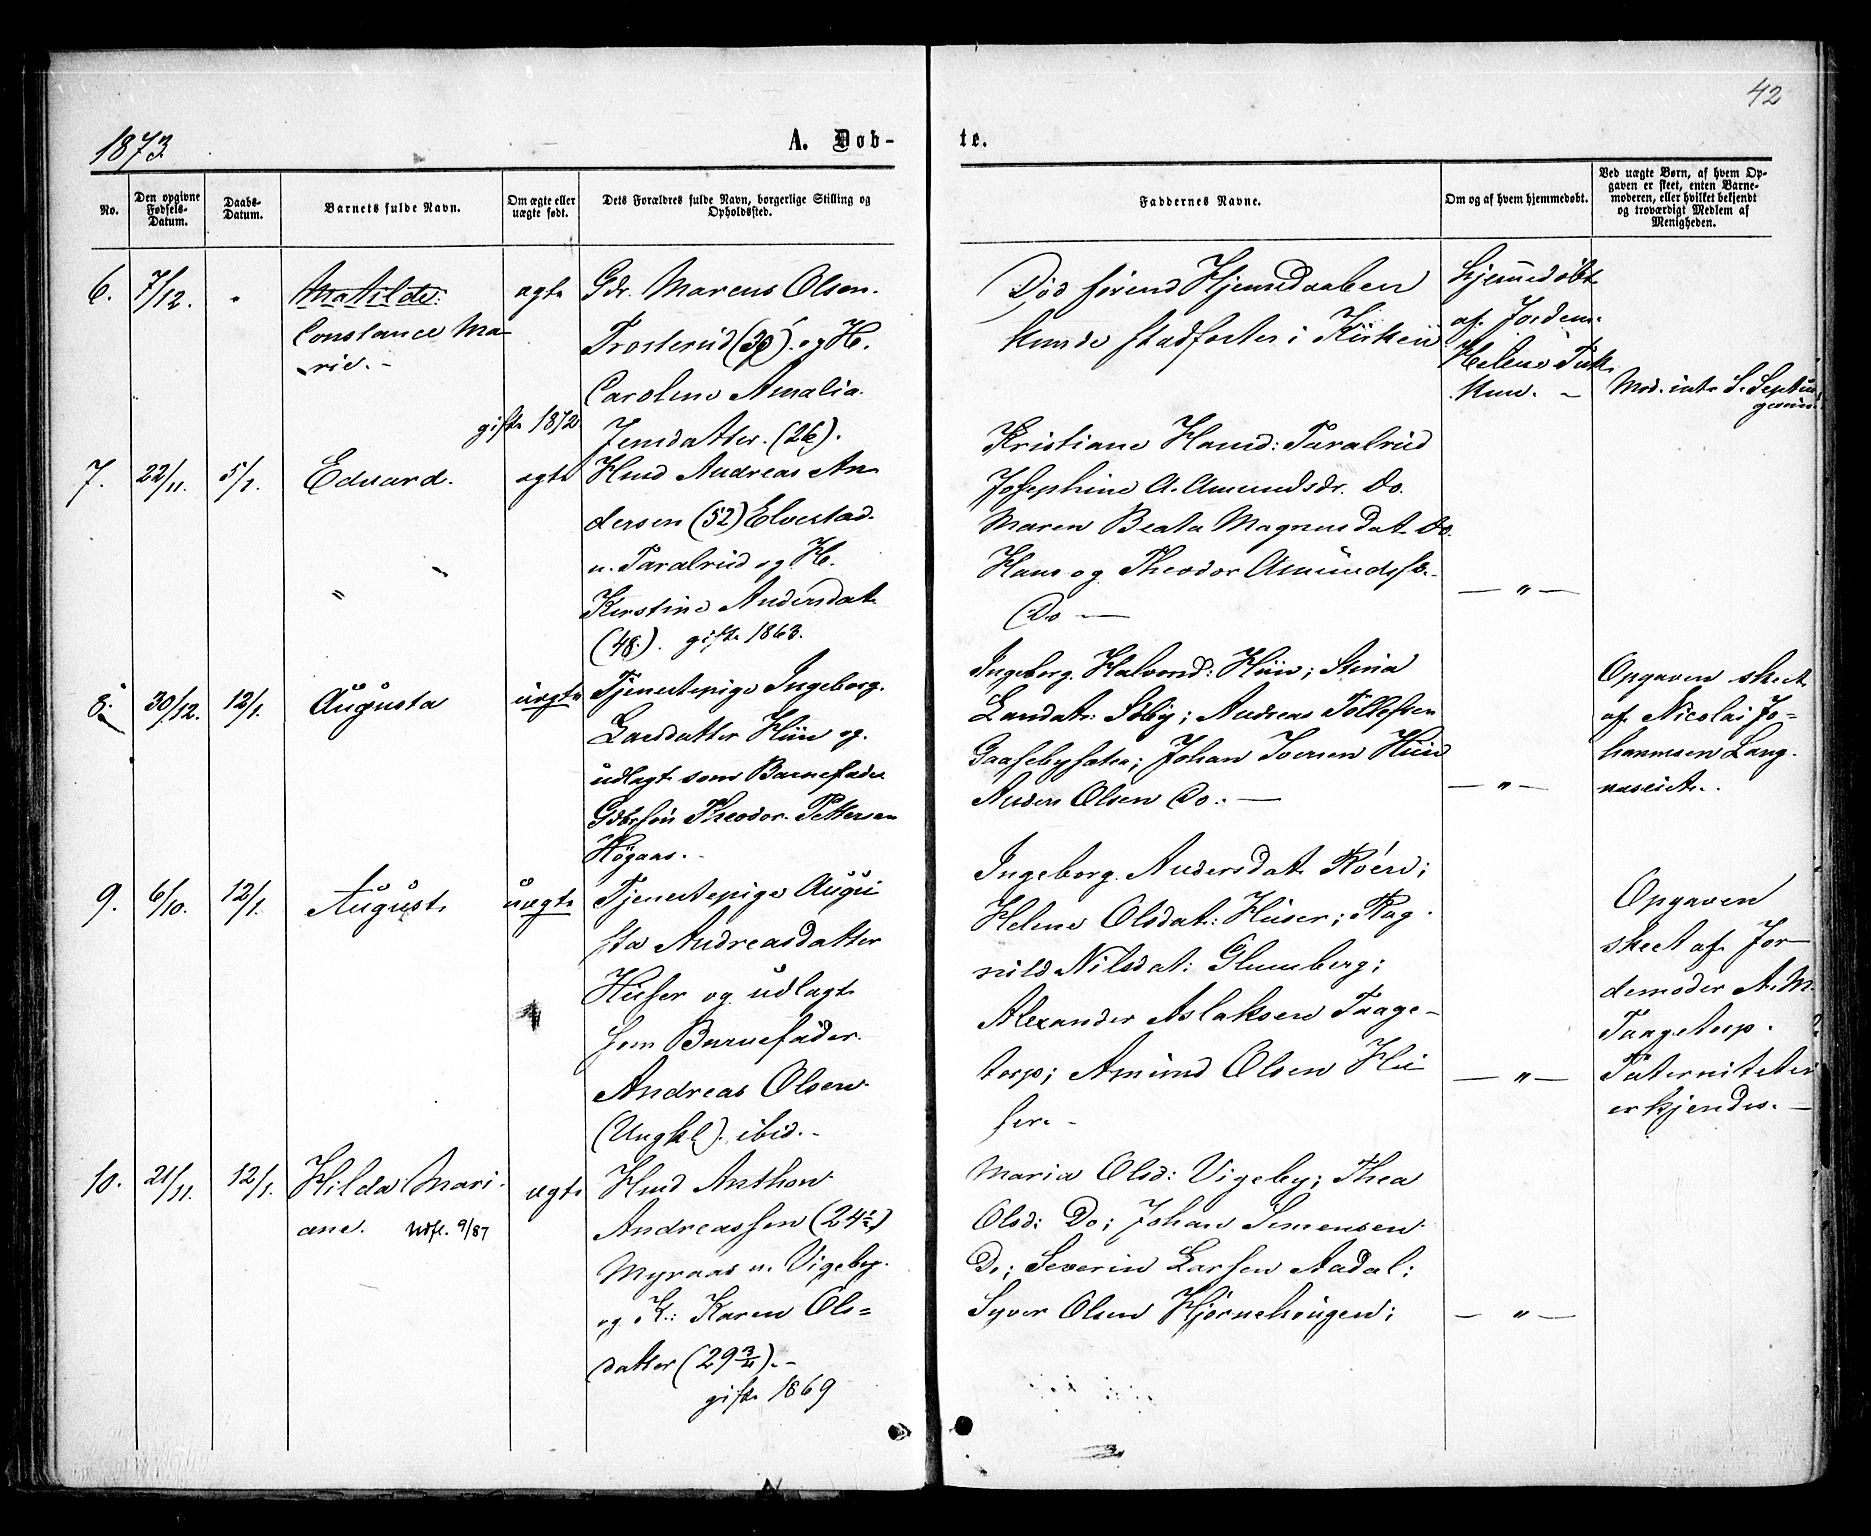 42
1873.
A. Døb-
te.
No.
Den opgivne Fødsels-Datum.
Daabs-Datum.
Barnets fulde Navn.
Om ægte eller uægte født.
Dets Forældres fulde Navn, borgerlige Stilling og Opholdssted.
Faddernes Navne.
Om og af hvem hjemmedøbt.
Ved uægte Børn, af hvem Op-
gaven er skeet, enten Barne-
moderen, eller hvilket bekjendt
og troværdigt Medlem af
Menigheden.
6.
7/12.
"
Matilde.
Constance Ma-
rie. -
ægte
Gdr. Marcus Olsen.
Trosterud (39). og H.
Caroline Amalia.
Jensdatter. (26).
gift 1872
Død førend Hjemdaaben
kunde stadfæstes i Kirken
Hjemdøbt
af Jordem.
Helene
Mod. intr. S. Septua
gesim.
7.
22/11.
5/1.
Eduard.
ægte
Hmd Andreas An
dersen (52) Elvestad.
u. Taralrud og H.
Kerstine Andersdat.
(48.). gift. 1863.
Kristiane Hansd: Taralrud
Josephine A. Amundsdr. Do.
Maren Beata Magnusdat. Do.
Hans og Theodor Amundss.
Do —
— " —
8.
30/12.
12/1.
Augusta
uægte
Tjenestepige Ingeborg.
Larsdatter Huu og.
udlagt som Barnefader
Gdbrsøn Theodor Pettersen
Högaas. -
Ingeborg Halvorsd: Huu; Stina
Larsdatr. Sæby; Andreas Tollefsen
Gaasebysæter; Johan Iversen Huu
Anders Olsen Do. —
— " —
Opgaven skeet
af Nicolai Jo-
hannesen Lang
naseiet.
9.
6/10.
12/1.
August
uægte
Tjenestepige Augu
sta Andreasdatter
Huser og udlagt
som Barnefader
Andreas Olsen
(Ungkl). ibid. -
Ingeborg Andersdat. Röen;
Helene Olsdat: Huser; Rag
nild Nilsdat: Glumberg;
Alexander Aslaksen Taage-
torp; Amund Olsen Hu
ser. -
— " —
Opgaven
skeet af Jor-
demoder A. M.
Taagetorp.
Paterniteten
erkjendes. —
10.
21/11.
12/1.
Hilda Mari
ane. Udfl. 9/87
ægte
Hmd Anthon
Andreassen (24½)
Myraas u. Vigeby.
og K: Karen Ols=
datter (29¾). -
gift. 1869
Maria Olsd: Vigeby; Thea
Olsd: Do; Johan Simensen
Do; Severin Larsen Aadal;
Syver Olsen Kjørnehougen;
— " —